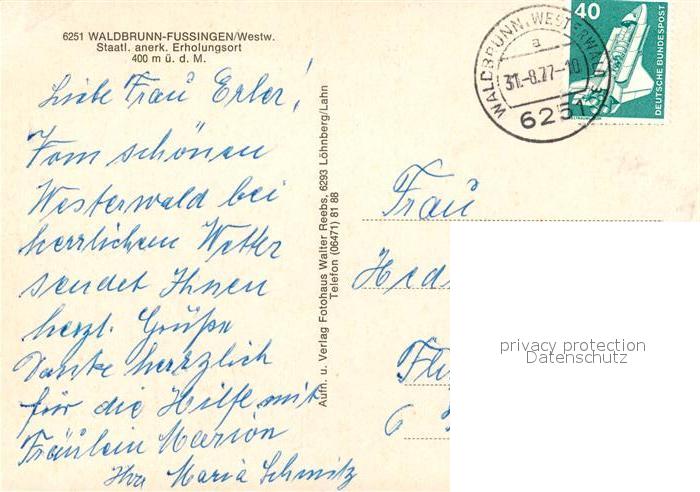 6251 WALDBRUNN-FUSSINGEN/Westw.
Staatl. anerk. Erholungsort
400 m ü. d. M.
Liebe Frau Erler!
Vom schönen
Westerwald bei
herrlichem Wetter
sendet Ihnen
herzl. Grüße
Danke herzlich
für die Hilfe mit
Fräulein Marion
Ihre Maria Schmitz
Aufn. u. Verlag Fotohaus Walter Reebs, 6293 Löhnberg/Lahn
Telefon (06471) 81 88
WALDBRUNN, WESTERWALD
a
31.-8.77-10
6251
40
DEUTSCHE BUNDESPOST
Frau
privacy protection
Datenschutz